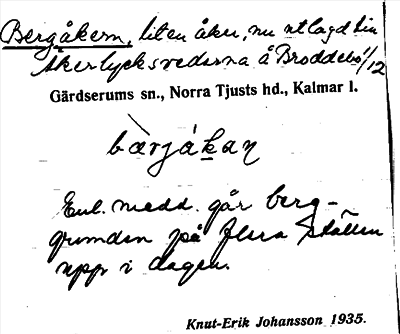 Bergåkern, liten åker, nu utlagd till
Åkerlycksvederna å Broddebo 1/12
Gärdserums sn., Norra Tjusts hd., Kalmar l.
bæ̀rjákaṇ
Enl. medd. går berg-
grunden på flera ställen
upp i dagen.
Knut-Erik Johansson 1935.